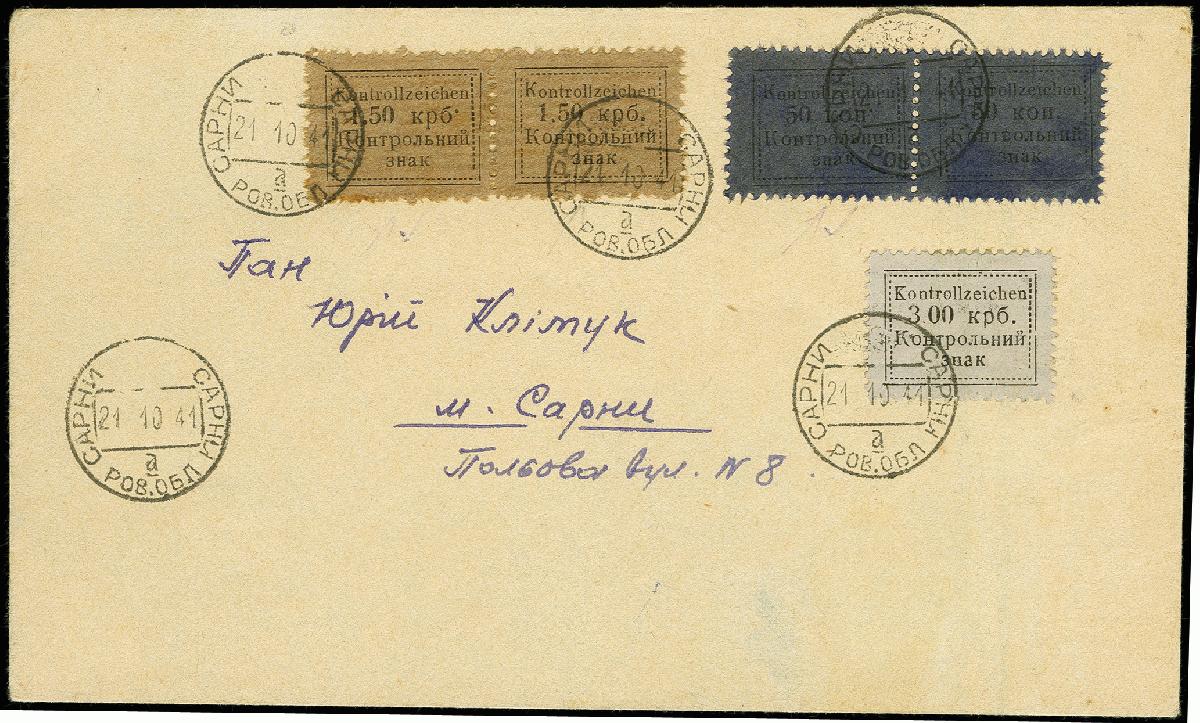 Kontrollzeichen
1.50 крб.
Контрольний
знак
Kontrollzeichen
1.50 крб.
Контрольний
знак
Kontrollzeichen
50 коп
Контрольний
знак
Kontrollzeichen
50 коп
Контрольний
знак
САРНИ САРНИ
21 10 41
а
РОВ.ОБЛ
САРНИ САРНИ
21 10 41
а
РОВ.ОБЛ
САРНИ
РОВ.ОБЛ
Пан
Юрій Клімук
Kontrollzeichen
3.00 крб.
Контрольний
знак
САРНИ САРНИ
21 10 41
а
РОВ.ОБЛ
САРНИ САРНИ
21 10 41
а
РОВ.ОБЛ
м. Сарни
вул. N 8